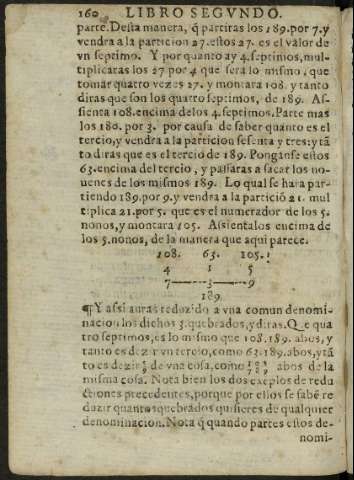 160 LIBRO SEGVNDO.
parte. Desta manera, q̃ partiras los 189. por 7. y
vendra a la particion 27. estos 27. es el valor de
vn septimo. Y por quanto ay 4. septimos, mul-
tiplicaras los 27 por 4 que sera lo mismo, que
tomar quatro vezes 27. y montara 108. y tanto
diras que son los quatro septimos, de 189. As-
sienta 108. encima delos 4. septimos. Parte mas
los 180. por 3. por causa de saber quanto es el
tercio, y vendra a la particion sesenta y tres: y tã
to diras que es el tercio de 189. Ponganse estos
63. encima del tercio, y passaras a sacar los no-
uenes de los mismos 189. Lo qual se hara par-
tiendo 189. por 9. y vendra a la particiõ 21. mul
tiplica 21. por 5. que es el numerador de los 5.
nonos, y montara 105. Assientalos encima de
los 5. nonos, de la manera que aqui parece.
108. 63. 105.
4 1 5
7——3——9
189.
¶Y assi auras reduzido a vna comun denomi-
nacion los dichos 3. quebrados, y diras. Que qua
tro septimos, es lo mismo que 108. 189. abos, y
tanto es dezir vn tercio, como 63. 189. abos, y tã
to es dezir 5/9 de vna cosa, como 105/189 abos de la
misma cosa. Nota bien los dos exẽplos de redu
ctiones precedentes, porque por ellos se sabẽ re
duzir quantos quebrados quisieres de qualquier
denominacion. Nota q̃ quando partes estos de-
nomi-